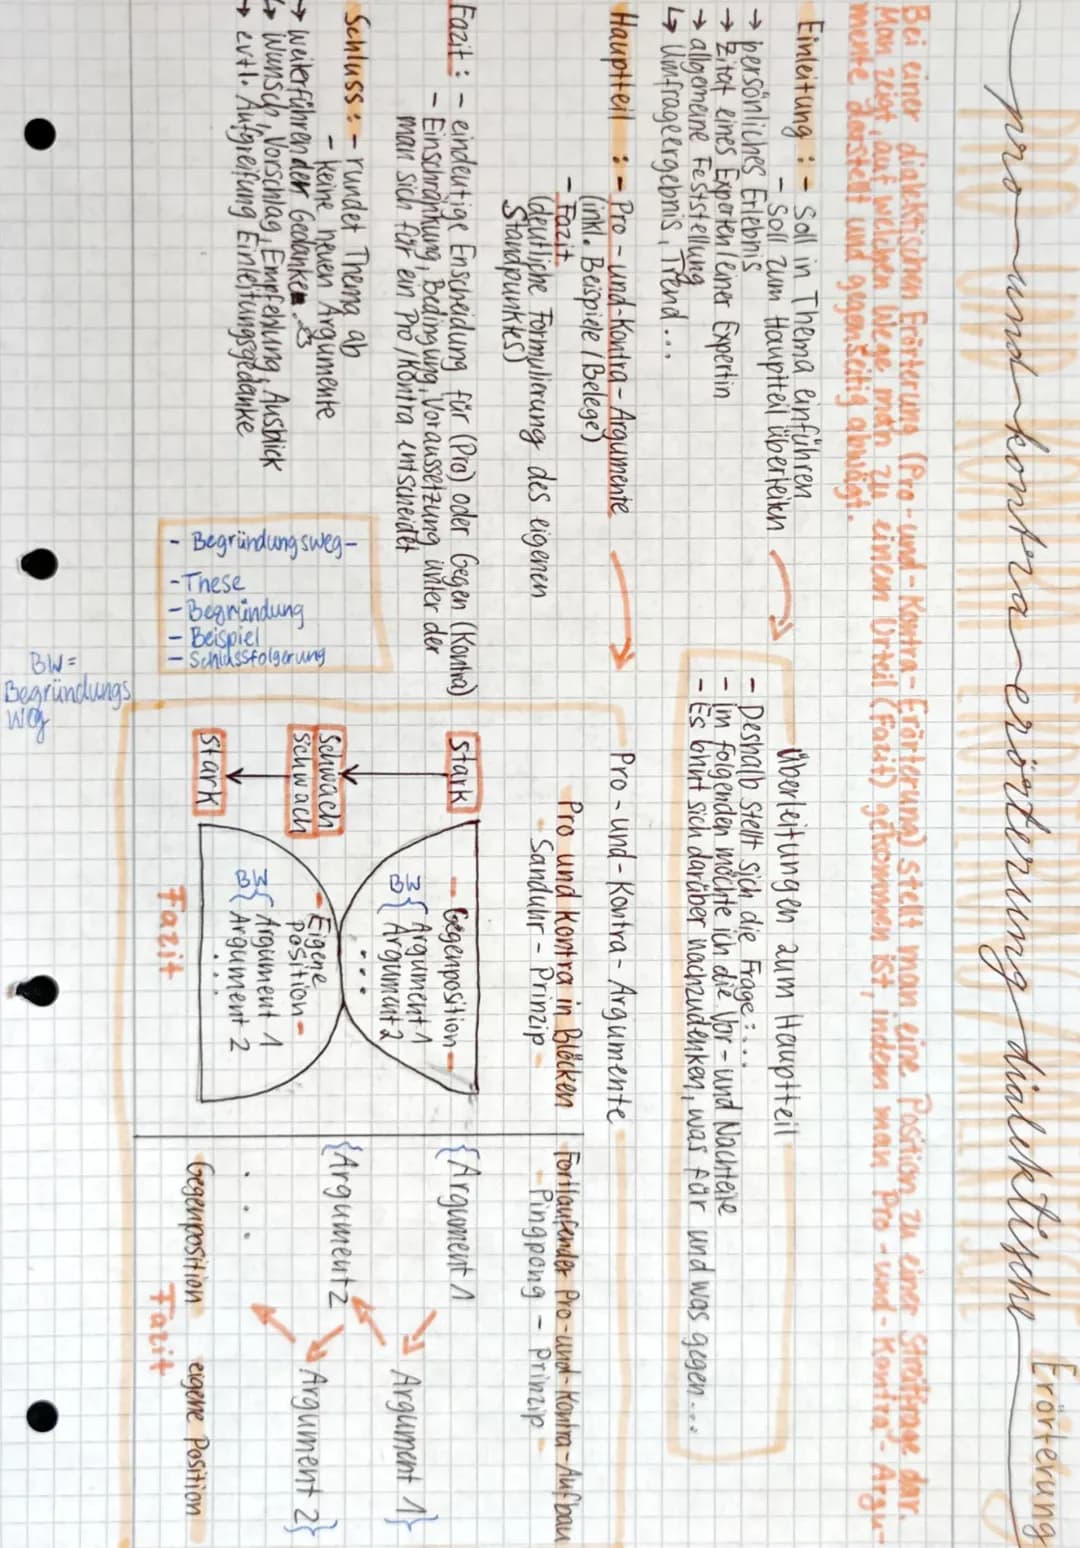 Erörterung
pro-und-kontra-erörterung/dialektische
PRO UND KONTRA ERÖRTERUNG/DIALEKTISCHE
Bei einer dialektischen Erörterung (Pro-und-Kontra-Erörterung) stellt man eine Position zu einer Streitfrage dar.
Man zeigt, auf welchem Wege man zu einem Urteil (Fazit) gekommen ist, indem man Pro-und-Kontra-Argu-
mente darstellt und gegenseitig abwägt.
Einleitung : - Soll in Thema einführen
- Soll zum Hauptteil überleiten
→ persönliches Erlebnis
→ Zitat eines Experten/einer Expertin
→ allgemeine Feststellung
↳ Umfrageergebnis, Trend...
Überleitungen zum Hauptteil
- Deshalb stellt sich die Frage:...
- im folgenden möchte ich die Vor-und Nachteile
- Es lohnt sich darüber nachzudenken, was für und was gegen...
Hauptteil : - Pro-und-Kontra-Argumente
(inkl. Beispiele/Belege)
- Fazit
(deutliche Formulierung des eigenen
Standpunktes)
Fazit : - eindeutige Enscheidung für (Pro) oder Gegen (Kontra)
- Einschränkung, Bedingung, Voraussetzung, unter der
man sich für ein Pro/Kontra entscheidet
Schluss : - rundet Thema ab
- keine neuen Argumente
→ weiterführender Gedanke
↳ Wunsch, Vorschlag, Empfehlung, Ausblick
→ evtl. Aufgreifung Einleitungsgedanke
- Begründungsweg-
- These
- Begründung
- Beispiel
- Schlussfolgerung
BW=
Begründungs
weg
Pro-und-Kontra-Argumente
Pro und Kontra in Blöcken
- Sanduhr-Prinzip -
stark
- Gegenposition -
BW { Argument 1
Argument 2
...
Schwach
schwach
- Eigene
position -
BW { Argument 1
Argument 2
...
stark
Fazit
Fortlaufender Pro-und-Kontra-Aufbau
- Pingpong-Prinzip -
{Argument 1
Argument 1}
{Argument 2
Argument 2}
...
Gegenposition eigene Position
Fazit